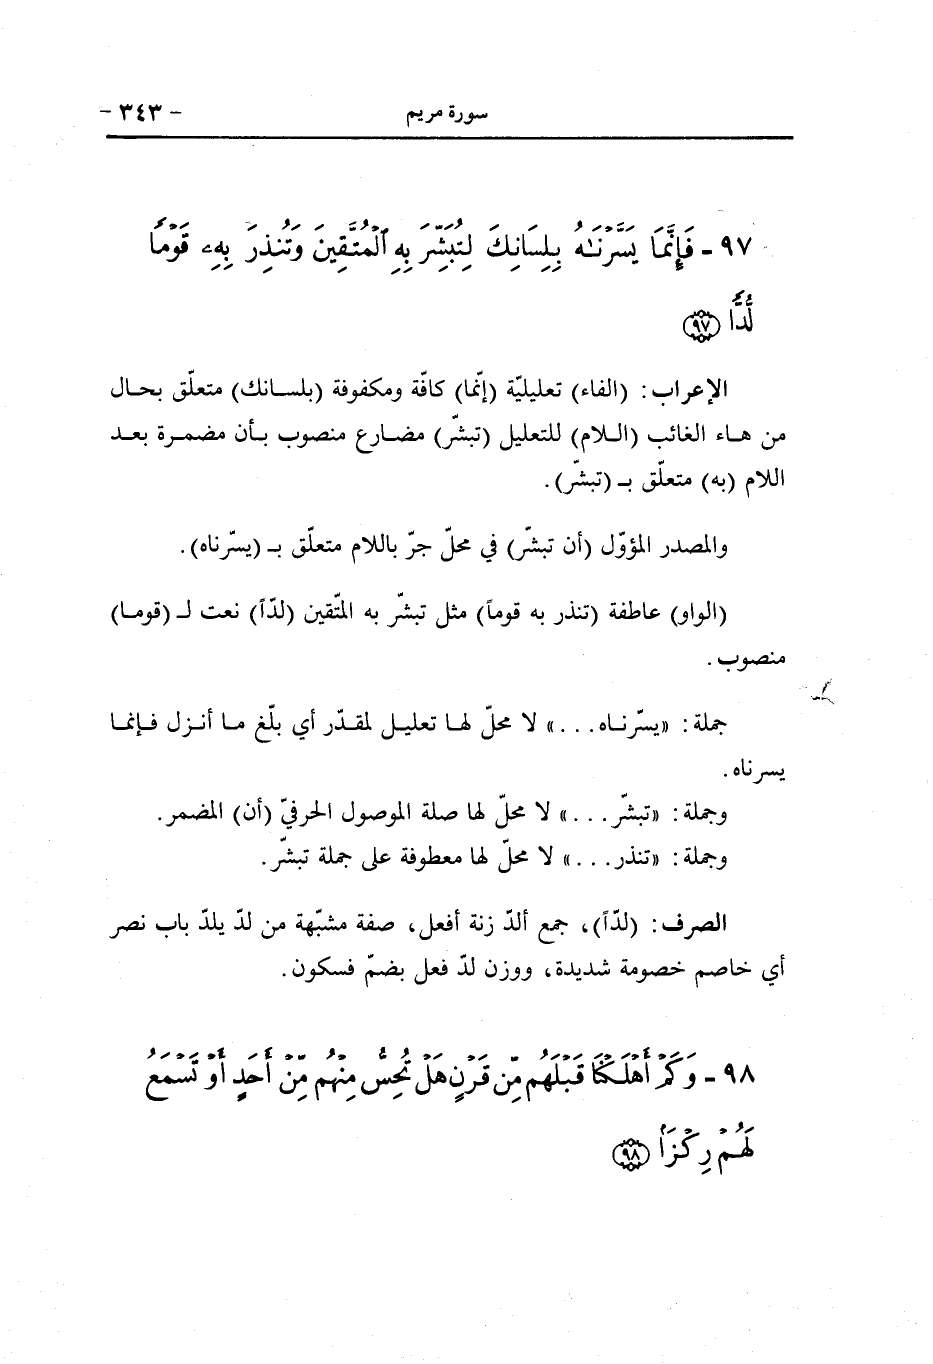 سورة مريم - ٣٤٣ -
٩٧ - فَإِنَّمَا يَسَّرْنَٰهُ بِلِسَانِكَ لِتُبَشِّرَ بِهِ ٱلْمُتَّقِينَ وَتُنذِرَ بِهِۦ قَوْمًا
لُّدًّا ٩٧
الإعراب: (الفاء) تعليليّة (إنّما) كافّة ومكفوفة (بلسانك) متعلّق بحال
من هاء الغائب (اللام) للتعليل (تبشّر) مضارع منصوب بأن مضمرة بعد
اللام (به) متعلّق بـ (تبشّر).
والمصدر المؤوّل (أن تبشّر) في محلّ جرّ باللام متعلّق بـ (يسّرناه).
(الواو) عاطفة (تنذر به قوماً) مثل تبشّر به المتّقين (لدّاً) نعت لـ (قوما)
منصوب.
جملة: «يسّرناه...» لا محلّ لها تعليل لمقدّر أي بلّغ ما أنزل فإنما
يسرناه.
وجملة: «تبشّر...» لا محلّ لها صلة الموصول الحرفيّ (أن) المضمر.
وجملة: «تنذر...» لا محلّ لها معطوفة على جملة تبشّر.
الصرف: (لدّاً)، جمع ألدّ زنة أفعل، صفة مشبّهة من لدّ يلدّ باب نصر
أي خاصم خصومة شديدة، ووزن لدّ فعل بضمّ فسكون.
٩٨ - وَكَمْ أَهْلَكْنَا قَبْلَهُم مِّن قَرْنٍ هَلْ تُحِسُّ مِنْهُم مِّنْ أَحَدٍ أَوْ تَسْمَعُ
لَهُمْ رِكْزًا ٩٨